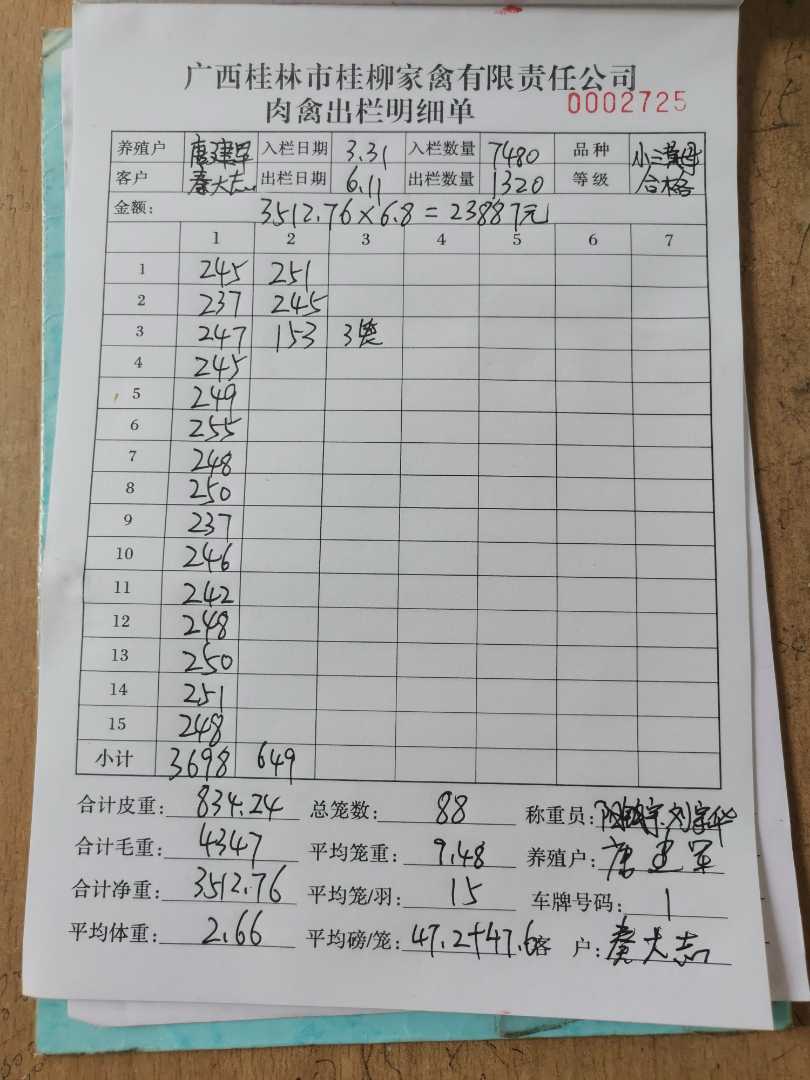 广西桂林市桂柳家禽有限责任公司
肉禽出栏明细单 0002725
养殖户 唐建军 入栏日期 3.31 入栏数量 7480 品种 小三黄
客户 秦大志 出栏日期 6.11 出栏数量 1320 等级 合格
金额: 3512.76×6.8=23887元
1 2 3 4 5 6 7
1 245 251
2 237 245
3 247 153 3隻
4 245
5 249
6 255
7 248
8 250
9 237
10 246
11 242
12 248
13 250
14 251
15 248
小计 3698 649
合计皮重: 834.24 总笼数: 88 称重员:
合计毛重: 4347 平均笼重: 9.48 养殖户: 唐建军
合计净重: 3512.76 平均笼/羽: 15 车牌号码: 1
平均体重: 2.66 平均磅/笼: 47.2+47.6 客 户: 秦大志